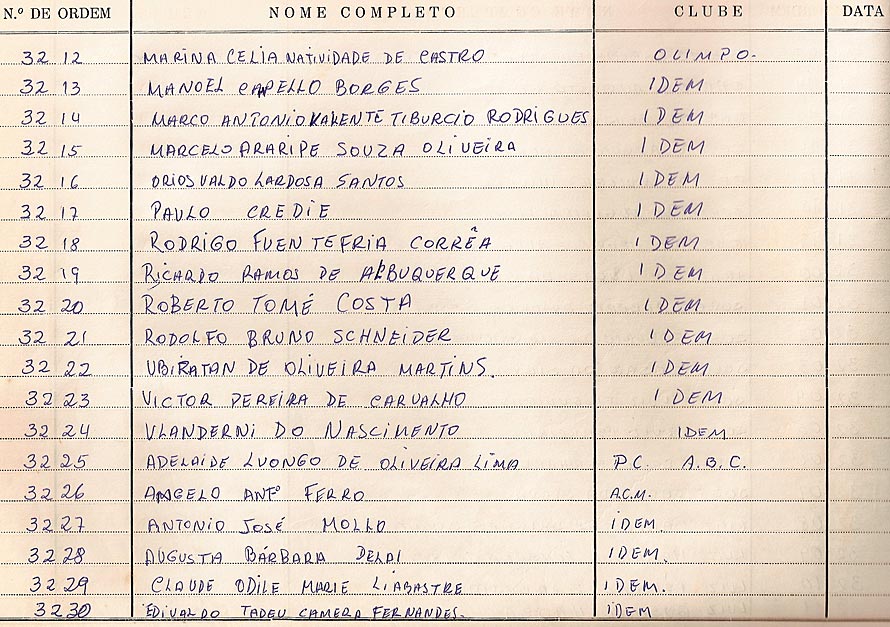 N.º DE ORDEM NOME COMPLETO CLUBE DATA
32 12 MARINA CELIA NATIVIDADE DE CASTRO OLIMPO.
32 13 MANOEL CAPELLO BORGES IDEM
32 14 MARCO ANTONIO VALENTE TIBURCIO RODRIGUES IDEM
32 15 MARCELO ARARIPE SOUZA OLIVEIRA IDEM
32 16 ORIOSVALDO LARDOSA SANTOS IDEM
32 17 PAULO CREDIE IDEM
32 18 RODRIGO FUENTEFRIA CORRÊA IDEM
32 19 RICARDO RAMOS DE ALBUQUERQUE IDEM
32 20 ROBERTO TOMÉ COSTA IDEM
32 21 RODOLFO BRUNO SCHNEIDER IDEM
32 22 UBIRATAN DE OLIVEIRA MARTINS. IDEM
32 23 VICTOR PEREIRA DE CARVALHO IDEM
32 24 VLANDERNI DO NASCIMENTO IDEM
32 25 ADELAIDE LUONGO DE OLIVEIRA LIMA P.C. A.B.C.
32 26 ANGELO ANTº FERRO A.C.M.
32 27 ANTONIO JOSÉ MOLLO IDEM.
32 28 AUGUSTA BÁRBARA DELAI IDEM.
32 29 CLAUDE ODILE MARIE LIABASTRE IDEM.
32 30 EDIVALDO TADEU CAMERA FERNANDES. IDEM